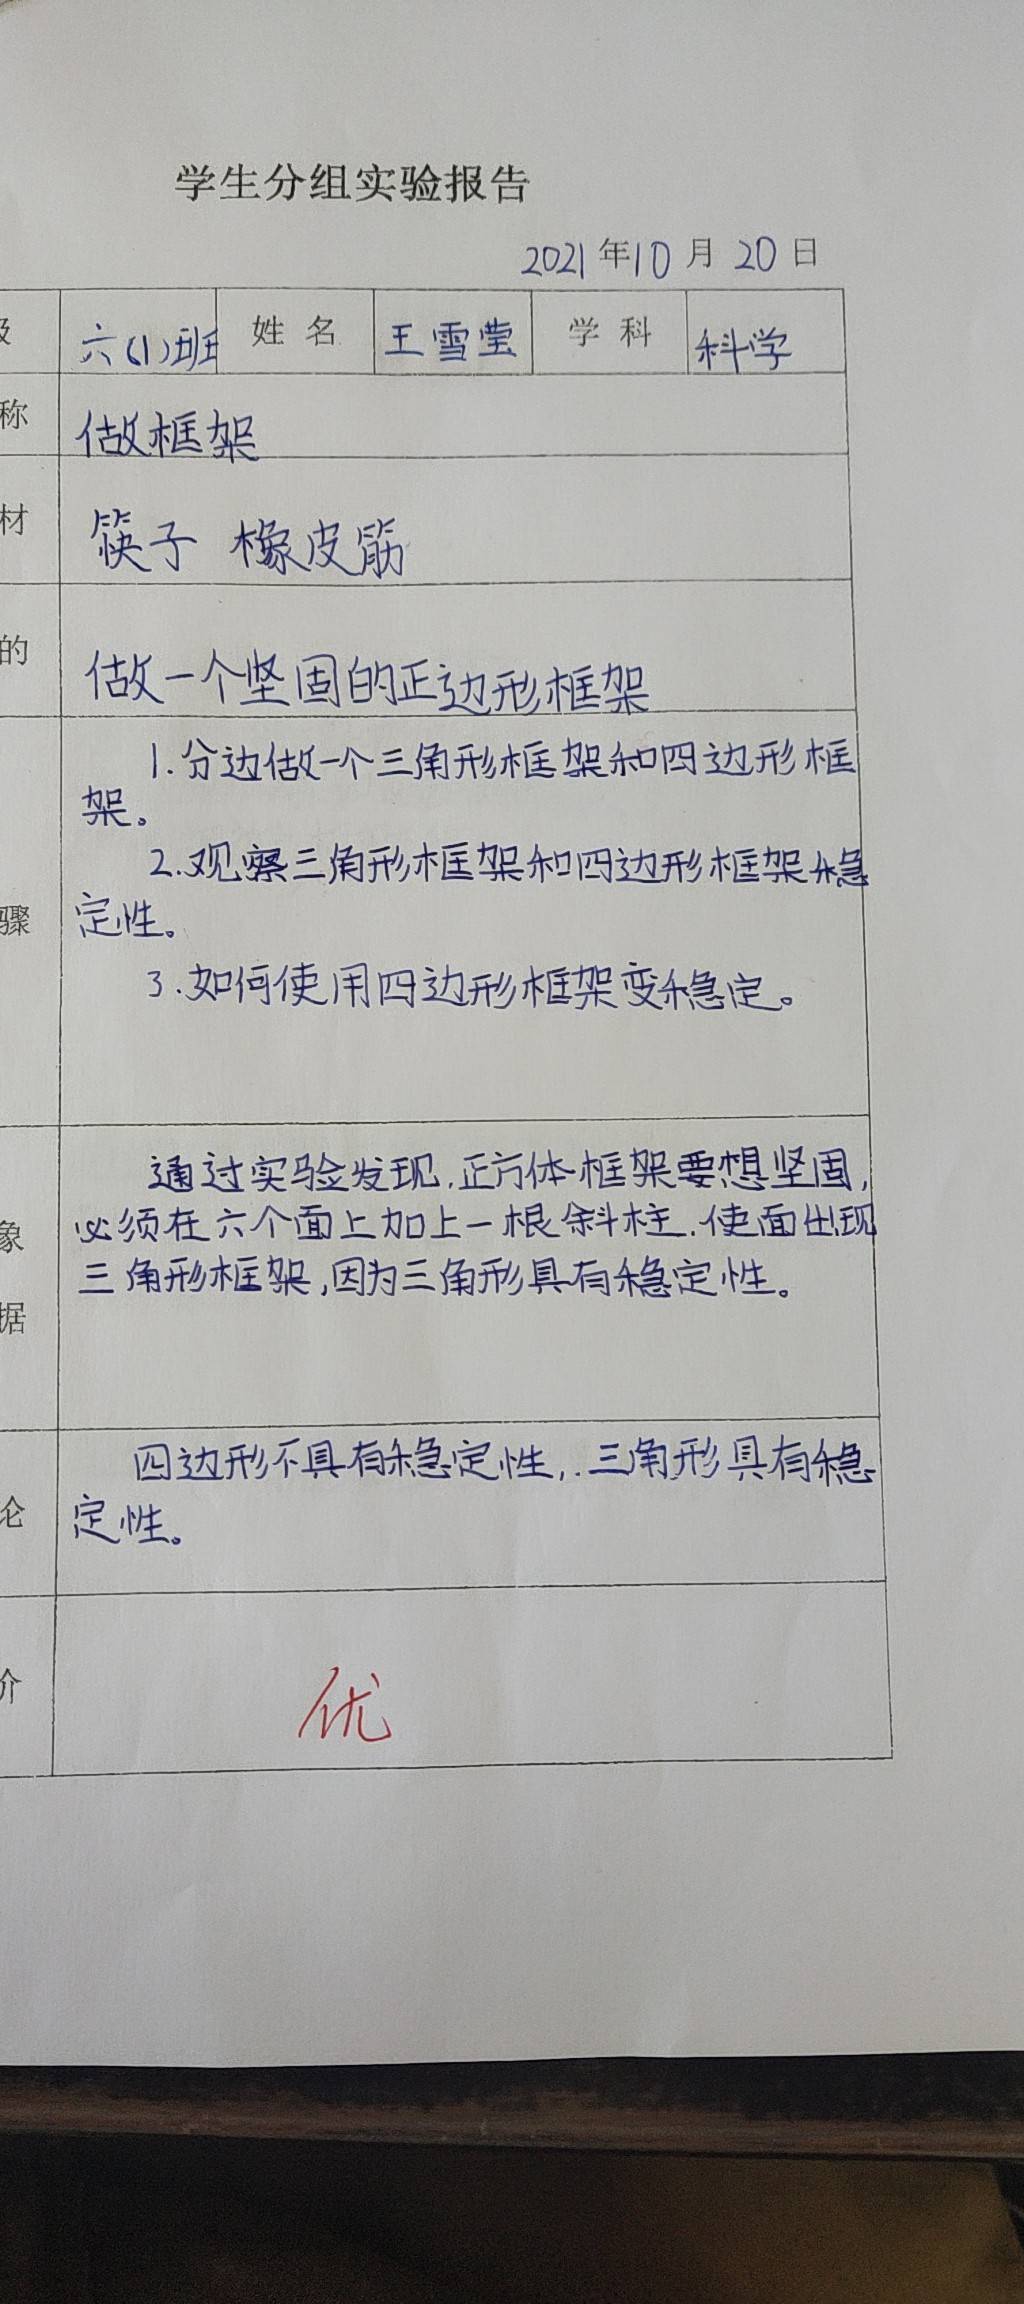 学生分组实验报告
2021年10月20日
级 六(1)班 姓名 王雪莹 学科 科学
称 做框架
材 筷子 橡皮筋
的 做一个坚固的正边形框架
1.分边做一个三角形框架和四边形框
架。
2.观察三角形框架和四边形框架稳
骤 定性。
3.如何使用四边形框架变稳定。
通过实验发现,正方体框架要想坚固,
象 必须在六个面上加上一根斜柱,使面出现
三角形框架,因为三角形具有稳定性。
据
四边形不具有稳定性,.三角形具有稳
论 定性。
价 优